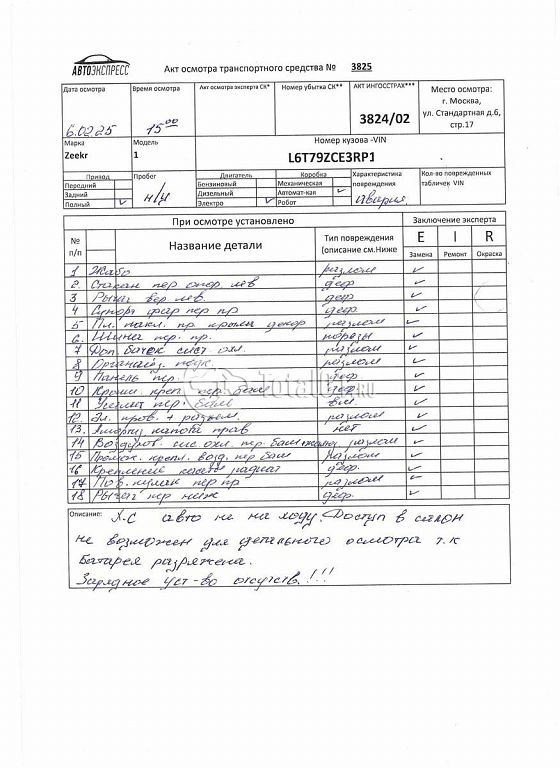 АВТОЭКСПРЕСС
Акт осмотра транспортного средства № 3825
Дата осмотра
6.02.25
Время осмотра
15 00
Акт осмотра эксперта СК*
Номер убытка СК**
АКТ ИНГОССТРАХ***
3824/02
Место осмотра:
г. Москва,
ул. Стандартная д.6,
стр.17
Марка
Zeekr
Модель
1
Номер кузова -VIN
L6T79ZCE3RP1
Привод
Передний
Задний
Полный ✓
Пробег
н/и
Двигатель
Бензиновый
Дизельный
Электро ✓
Коробка
Механическая
Автомат-кая ✓
Робот
Характеристика
повреждения
Авария.
Кол-во поврежденных
табличек VIN
При осмотре установлено
Заключение эксперта
№
п/п
Название детали
Тип повреждения
(описание см.Ниже
E I R
Замена Ремонт Окраска
1 Жабо разлом ✓
2. Стакан пер опор лев деф ✓
3 Рычаг вер лев. деф ✓
4 Супорт фар пер пр деф. ✓
5 Пл. накл. пр. крыла декор разлом ✓
6. Шина пер. пр. порезы ✓
7 Доп. бачек сист. охл. разлом ✓
8 разлом ✓
9 Панель пер. деф ✓
10 Кронш. креп. пер. бам деф. ✓
11 Усилит пер. бам ✓
12 Эл. пров. + разъем. разлом ✓
13. Амортиз капота прав нет ✓
14 Воздухов. сис. охл. пер. бам разлом ✓
15 крепл. возд. пер бам разлом ✓
16 Крепление радиат деф. ✓
17 Пов. кулак пер пр разлом ✓
18 Рычаг пер ниж деф. ✓
Описание: Х-С авто не на ходу. Доступ в салон
не возможен для детального осмотра т.к
батарея разряжена.
Зарядное уст-во отсутств.!!!